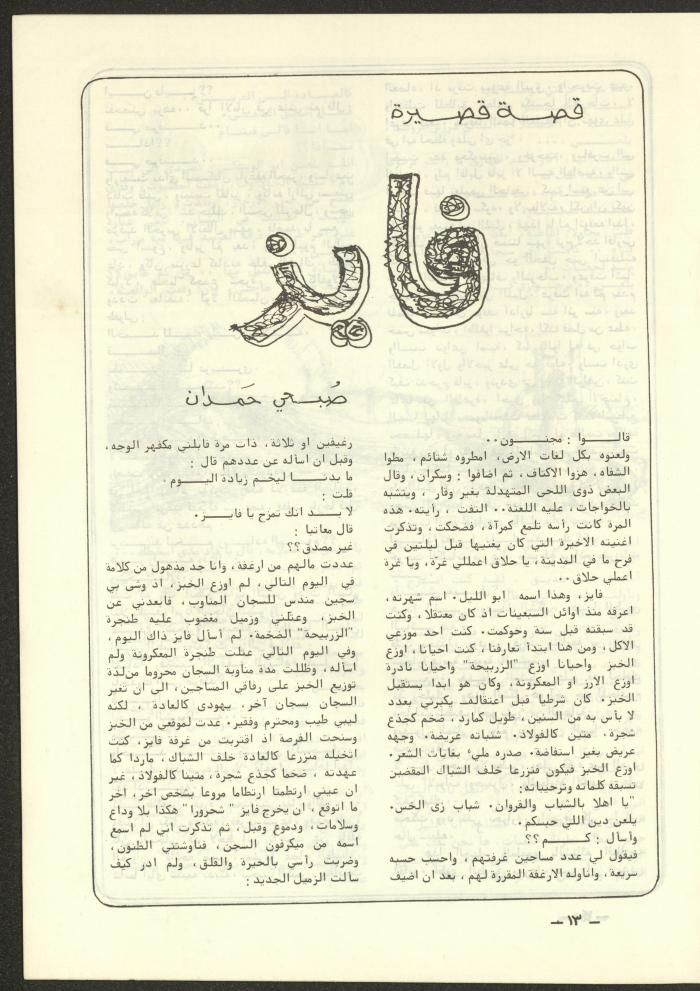 قصة قصيرة
فايز
صُبحي حَمدان
قالوا : مجنون ..
ولعنوه بكل لغات الارض، امطروه شتائم، مطوا
الشفاه، هزوا الاكتاف، ثم اضافوا : وسكران، وقال
البعض ذوى اللحى المتهدلة بغير وقار ، ويتشبه
بالخواجات، عليه اللعنة.. التفت ، رأيته، هذه
المرة كانت رأسه تلمع كمرآة، فضحكت، وتذكرت
اغنيته الاخيرة التي كان يغنيها قبل ليلتين في
فرح ما في المدينة، يا حلاق اعمللي غرّة، ويا غرة
اعملي حلاق..
فايز، وهذا اسمه ابو الليل. اسم شهرته،
اعرفه منذ اوائل السبعينات اذ كان معتقلا، وكنت
قد سبقته قبل سنة وحوكمت. كنت احد موزعي
الاكل، ومن هنا ابتدأ تعارفنا، كنت احيانا، اوزع
الخبز واحيانا اوزع "الزريبحة" واحيانا نادرة
اوزع الارز او المعكرونة، وكان هو ابدا يستقبل
الخبز. كان شرطيا قبل اعتقاله، يكبرني بعدد
لا بأس به من السنين، طويل كمارد، ضخم كجذع
شجرة، متين كالفولاذ، شنباته عريضة، وجهه
عريض بغير استفاضة، صدره مليء بغابات الشعر.
اوزع الخبز فيكون منزرعا خلف الشباك المقضبن
تسبقه كلماته وترحيباته:
"يا اهلا بالشباب والقروان. شباب زى الخس.
يلعن دين اللي حبسكم.
وأسأل : كم ؟؟
فيقول لي عدد مساجين غرفتهم ، واحسب حسبه
سريعة، واناوله الارغفة المقررة لهم ، بعد ان اضيف
رغيفين او ثلاثة، ذات مرة قابلني مكفهر الوجه،
وقبل ان اسأله عن عددهم قال :
ما بدنا ليخم زيادة اليوم .
قلت :
لا بد انك تمزح يا فايز.
قال معاتبا :
غير مصدق؟؟
عددت مالهم من ارغفة، وانا جد مذهول من كلامة
في اليوم التالي، لم اوزع الخبز، اذ وشى بي
سجين مندس للسجان المناوب، فابعدني عن
الخبز، وعتلني وزميل مغضوب عليه طنجرة
"الزريبحة" الضخمة. لم أسأل فايز ذاك اليوم،
وفي اليوم التالي عتلت طنجرة المعكرونة ولم
اسأله، وظللت مدة مناوبة السجان محروما من لذة
توزيع الخبز على رفاقي المساجين، الى ان تغير
السجان بسجان آخر، يهودى كالعادة ، لكنه
ليبي طيب ومحترم وفقير. عدت لموقعي من الخبز
وسنحت الفرصة اذ اقتربت من غرفة فايز، كنت
اتخيله منزرعا كالعادة خلف الشباك، ماردا كما
عهدته ، ضخما كجذع شجرة، متينا كالفولاذ، غير
ان عيني ارتطمتا ارتطاما مروعا بشخص اخر، اخر
ما اتوقع ، ان يخرج فايز " شحرورا " هكذا بلا وداع
وسلامات، ودموع وقبل، ثم تذكرت اني لم اسمع
اسمه من ميكرفون السجن، فناوشتني الظنون،
وضربت رأسي بالحيرة والقلق، ولم ادر كيف
سألت الزميل الجديد :
— ١٣ —